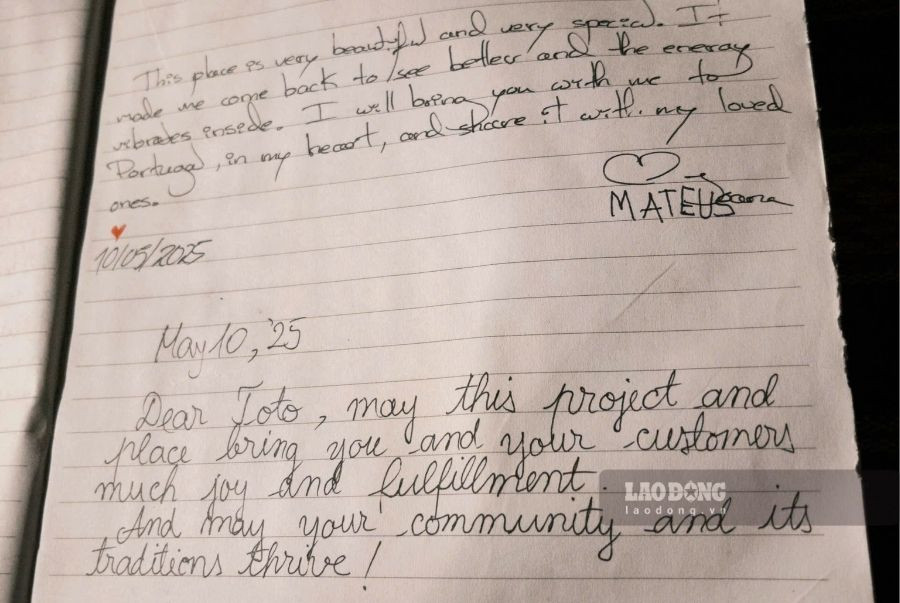 This place is very beautiful and very special. It
made me come back to see better and the energy
vibrates inside. I will bring you with me to
Portugal, in my heart, and share it with my loved
ones.
MATEUS
10/05/2025
May 10, '25
Dear Toto, may this project and
place bring you and your customers
much joy and fulfillment.
And may your community and its
traditions thrive!
LAO DONG
laodong.vn